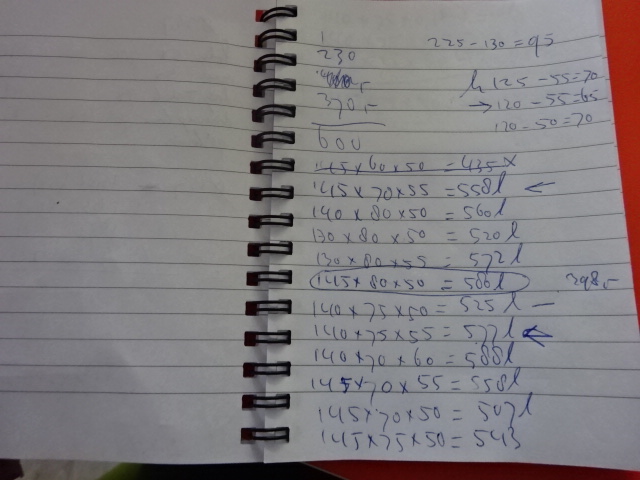 1
230
225-130=95
h 125-55=70
370,-
→ 120-55=65
120-50=70
600
145x60x50 =435x
145x70x55 =558l ←
140x80x50 =560l
130x80x50 =520l
130x80x55 =572l
145x80x50 =580l 398,-
140x75x50 =525l -
140x75x55 =577l ←
140x70x60 =588l
145x70x55 =558l
145x70x50 = 507l
145x75x50 = 543